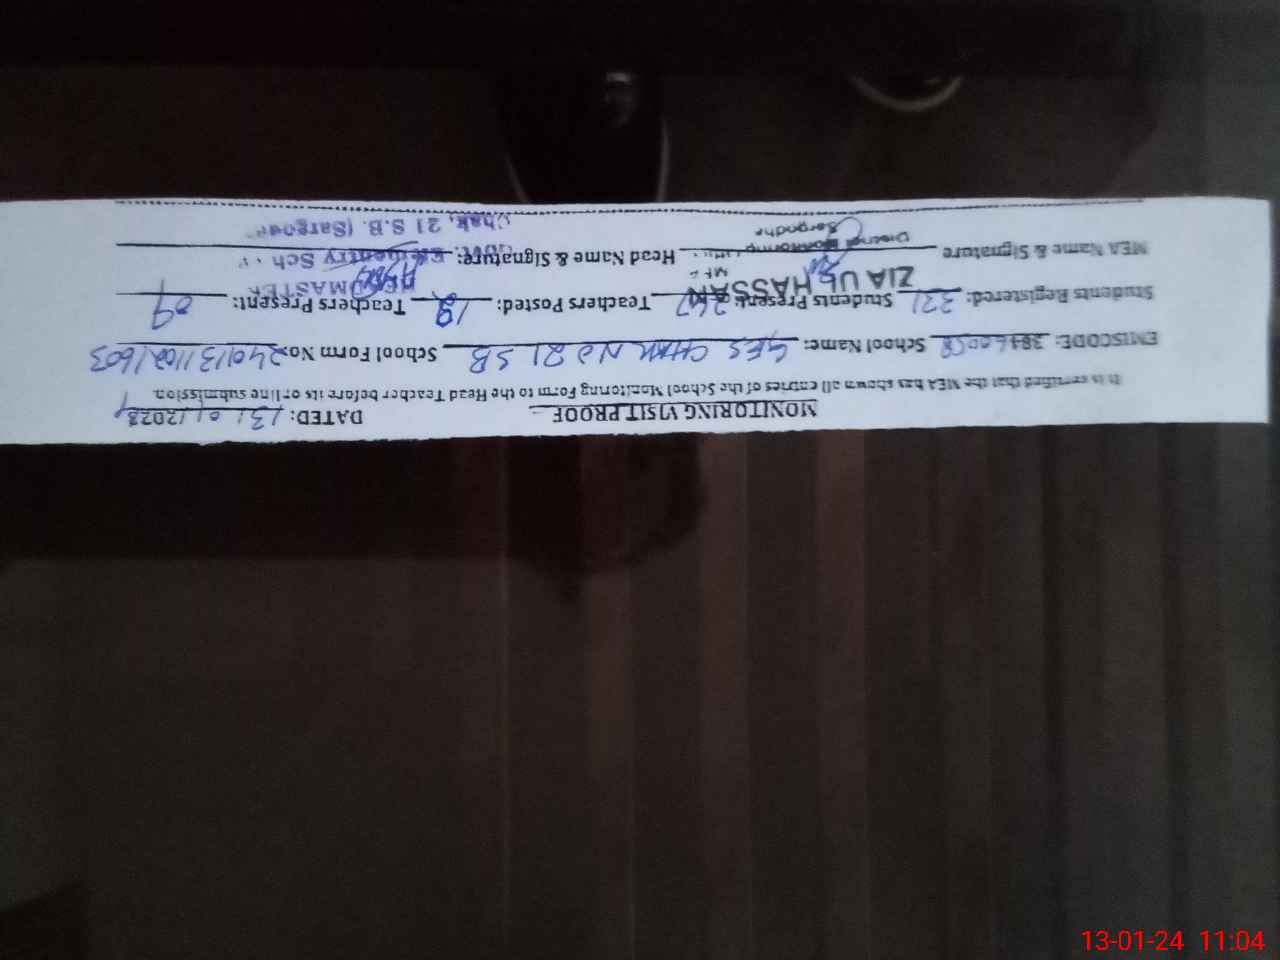 MONITORING VISIT PROOF DATED: 13/01/2024
It is certified that the MEA has shown all entries of the School Monitoring Form to the Head Teacher before its online submission.
EMISCODE: School Name: GES CHAK NO 21 SB School Form No. 240113110021603
Students Registered: 331 Students Present: Teachers Posted: 12 Teachers Present: 09
ZIA UL HASSAN
HEADMASTER
MEA Name & Signature Head Name & Signature: Govt. Elementry Sch
Sargodha
Chak. 21 S.B. (Sargo
13-01-24 11:04